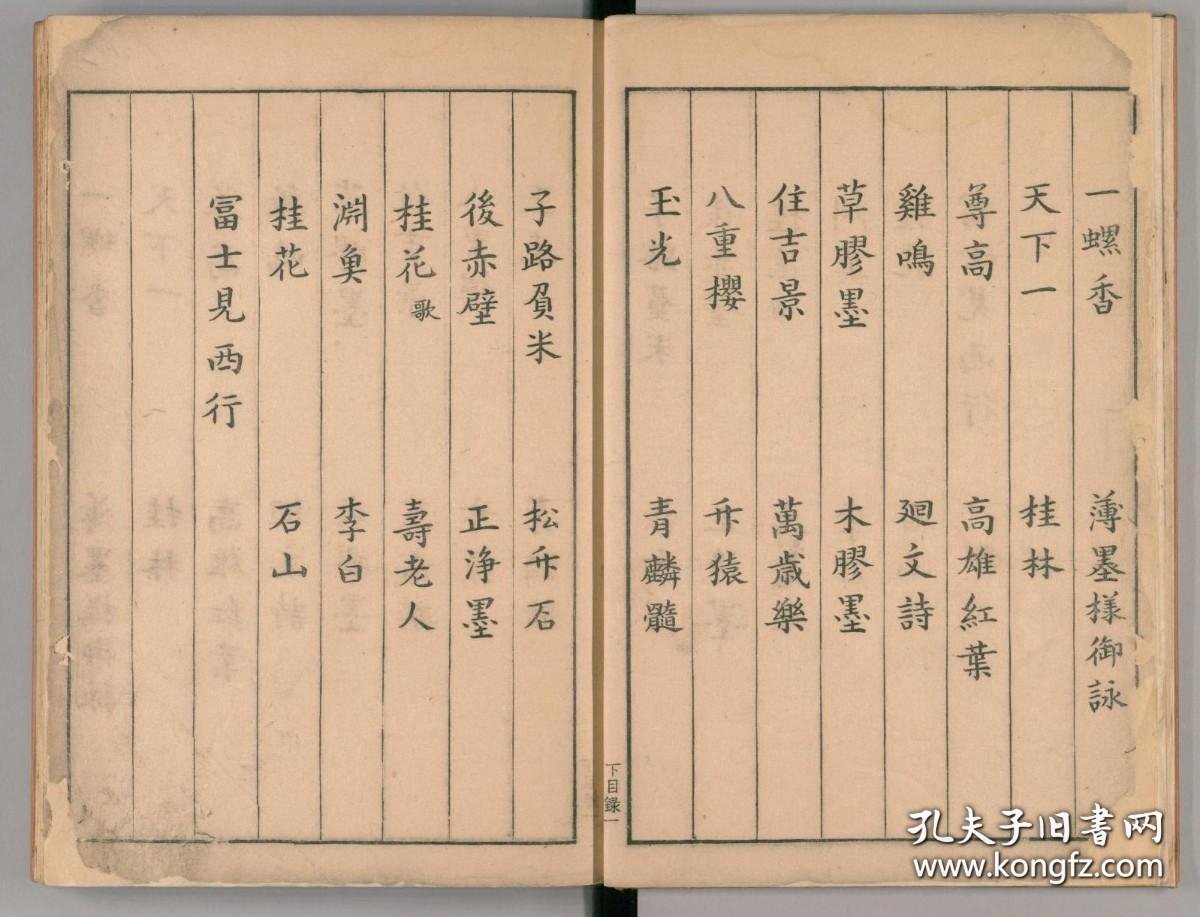 一螺香 薄墨樣御詠
天下一 桂林
尊高 高雄紅葉
雞鳴 廻文詩
草膠墨 木膠墨
住吉景 萬歲樂
八重櫻 竹猿
玉光 青麟髓
下目録一
子路負米 松竹石
後赤壁 正淨墨
桂花歌 壽老人
淵奠 李白
桂花 石山
冨士見西行
孔夫子旧書网
www.kongfz.com